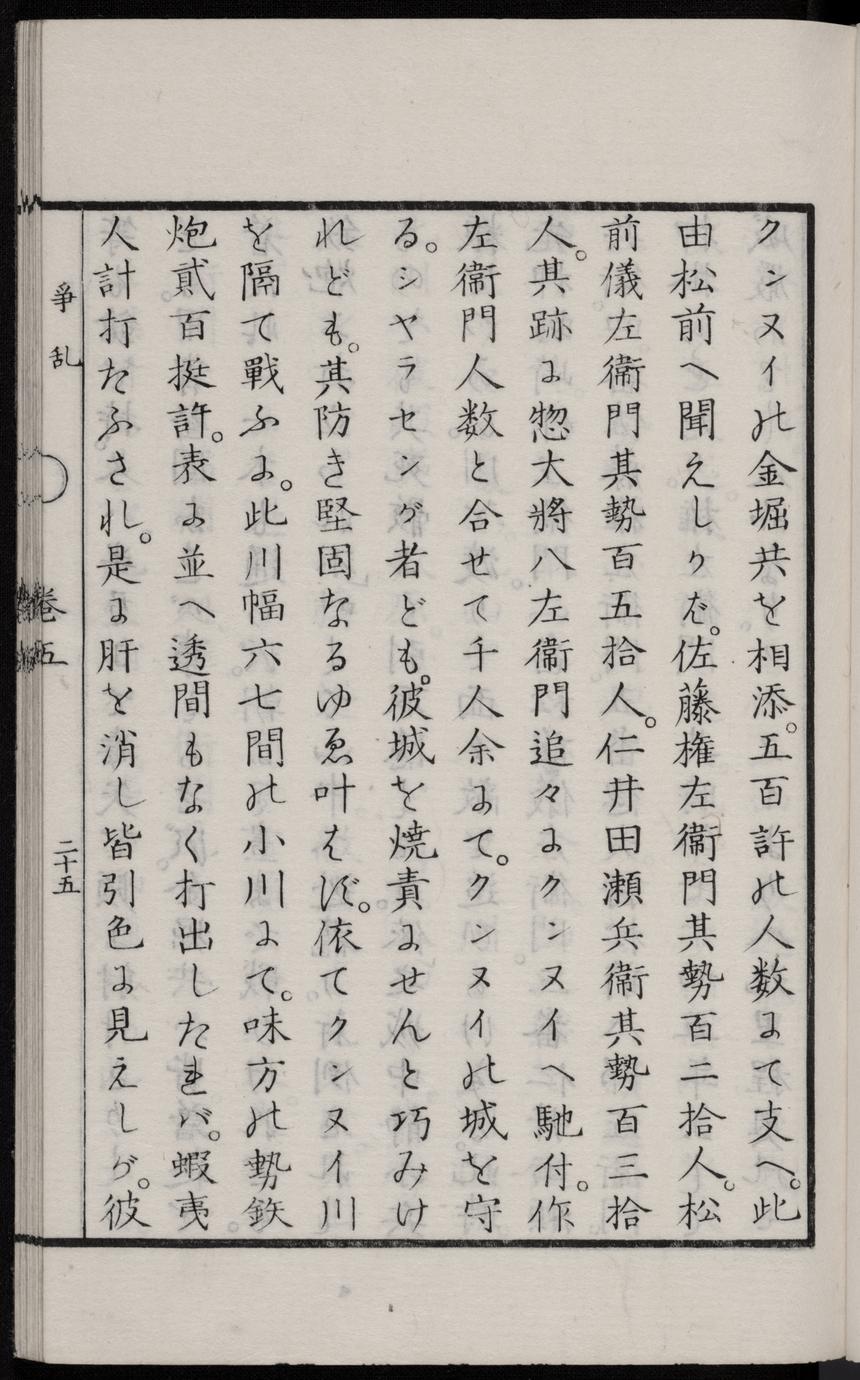 クンヌイの金堀共を相添。五百許の人数にて支へ。此
由松前へ聞えしりば。佐藤権左衞門其勢百二拾人。松
前儀左衞門其勢百五拾人。仁井田瀬兵衞其勢百三拾
人。其跡に惣大將八左衞門追々にクンヌイへ馳付。作
左衞門人数と合せて千人余にて。クンヌイの城を守
る。シヤラセンが者ども。彼城を焼責にせんと巧みけ
れども。其防き堅固なるゆゑ叶はず。依てクンヌイ川
を隔て戰ふに。此川幅六七間の小川にて。味方の勢鉄
炮貳百挺許。表に並へ透間もなく打出したれバ。蝦夷
人計打たふされ。是に肝を消し皆引色に見えしが。彼
爭乱
卷五
二十五